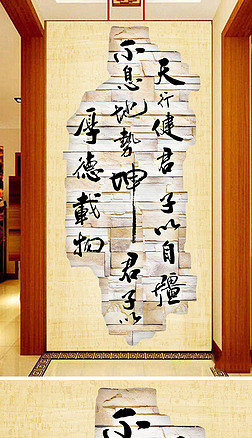 天行健君子以自彊
不息地勢坤君子以
厚德載物
不